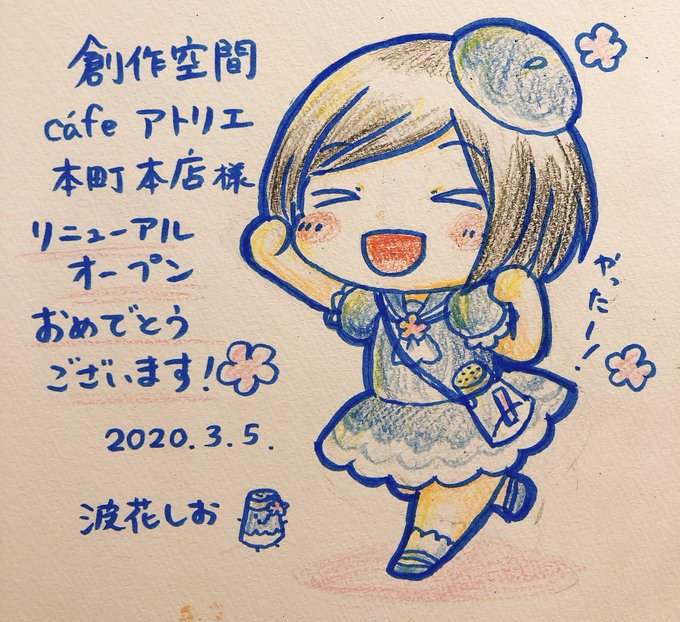 創作空間
cafe アトリエ
本町本店様
リニューアル
オープン
おめでとう
ございます!
2020.3.5.
波花しお
やったー!